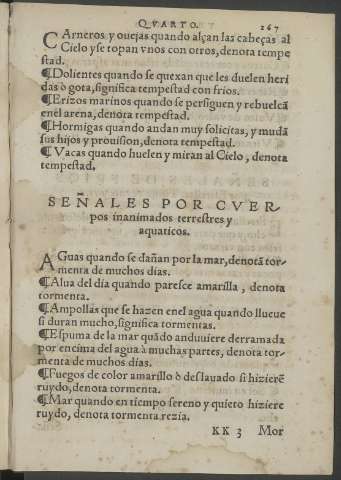 QVARTO. 267
CArneros y ouejas quando alçan las cabeças al
Cielo y se topan vnos con otros, denota tempe
stad.
¶Dolientes quando se quexan que les duelen heri
das ò gota, significa tempestad con frios.
¶Erizos marinos quando se persiguen y rebuelcã
en el arena, denota tempestad.
¶Hormigas quando andan muy solicitas, y mudã
sus hijos y prouision, denota tempestad.
¶Vacas quando huelen y miran al Cielo, denota
tempestad.
SEÑALES POR CVER-
pos inanimados terrestres y
aquaticos.
AGuas quando se dañan por la mar, denotã tor-
menta de muchos dias.
¶Alua del dia quando paresce amarilla, denota
tormenta.
¶Ampollas que se hazen en el agua quando llueue
si duran mucho, significa tormentas.
¶Espuma de la mar quãdo anduuiere derramada
por encima del agua à muchas partes, denota tor-
menta de muchos dias.
¶Fuegos de color amarillo ò deslauado si hizierẽ
ruydo, denota tormenta.
¶Mar quando en tiempo sereno y quieto hiziere
ruydo, denota tormenta rezia.
KK 3 Mor